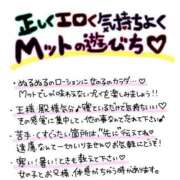 正しくエロく気持ちよく
Mットの遊びち♡
・ぬるぬるのローションに女の子のカラダ…♡
Mットでしか味わえない元くを楽しみましょう!!
・王様、殿様気分♪寝ているだけで気持ちいい♡
その感覚に集中して、他の事なんて忘れさせて♡
・苦手・くすぐったい箇所は"先に"伝えてね
遠慮なんて一切いりません♡お気軽にどうぞ!
・寒い!暑い!ときも教えて下さい♡
女の子とお父様、体感がちがう時があります。